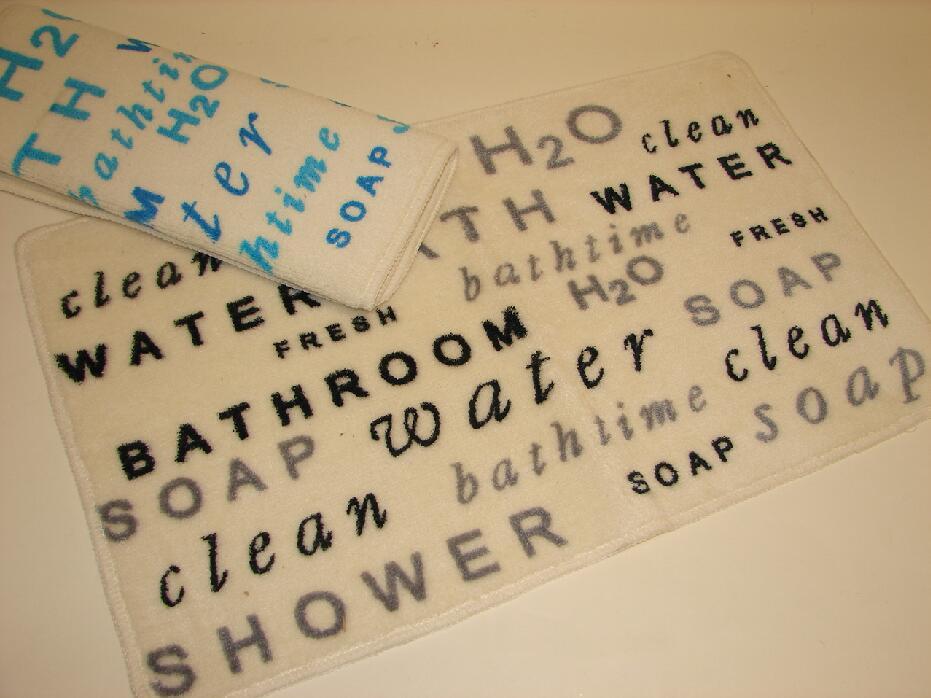 H2O
TH
bathtime
H2O
ter
htime
SOAP
H2O clean
TH WATER
bathtime FRESH
clean H2O SOAP
WATER
FRESH
BATHROOM water clean
SOAP bathtime SOAP soap
clean
SHOWER